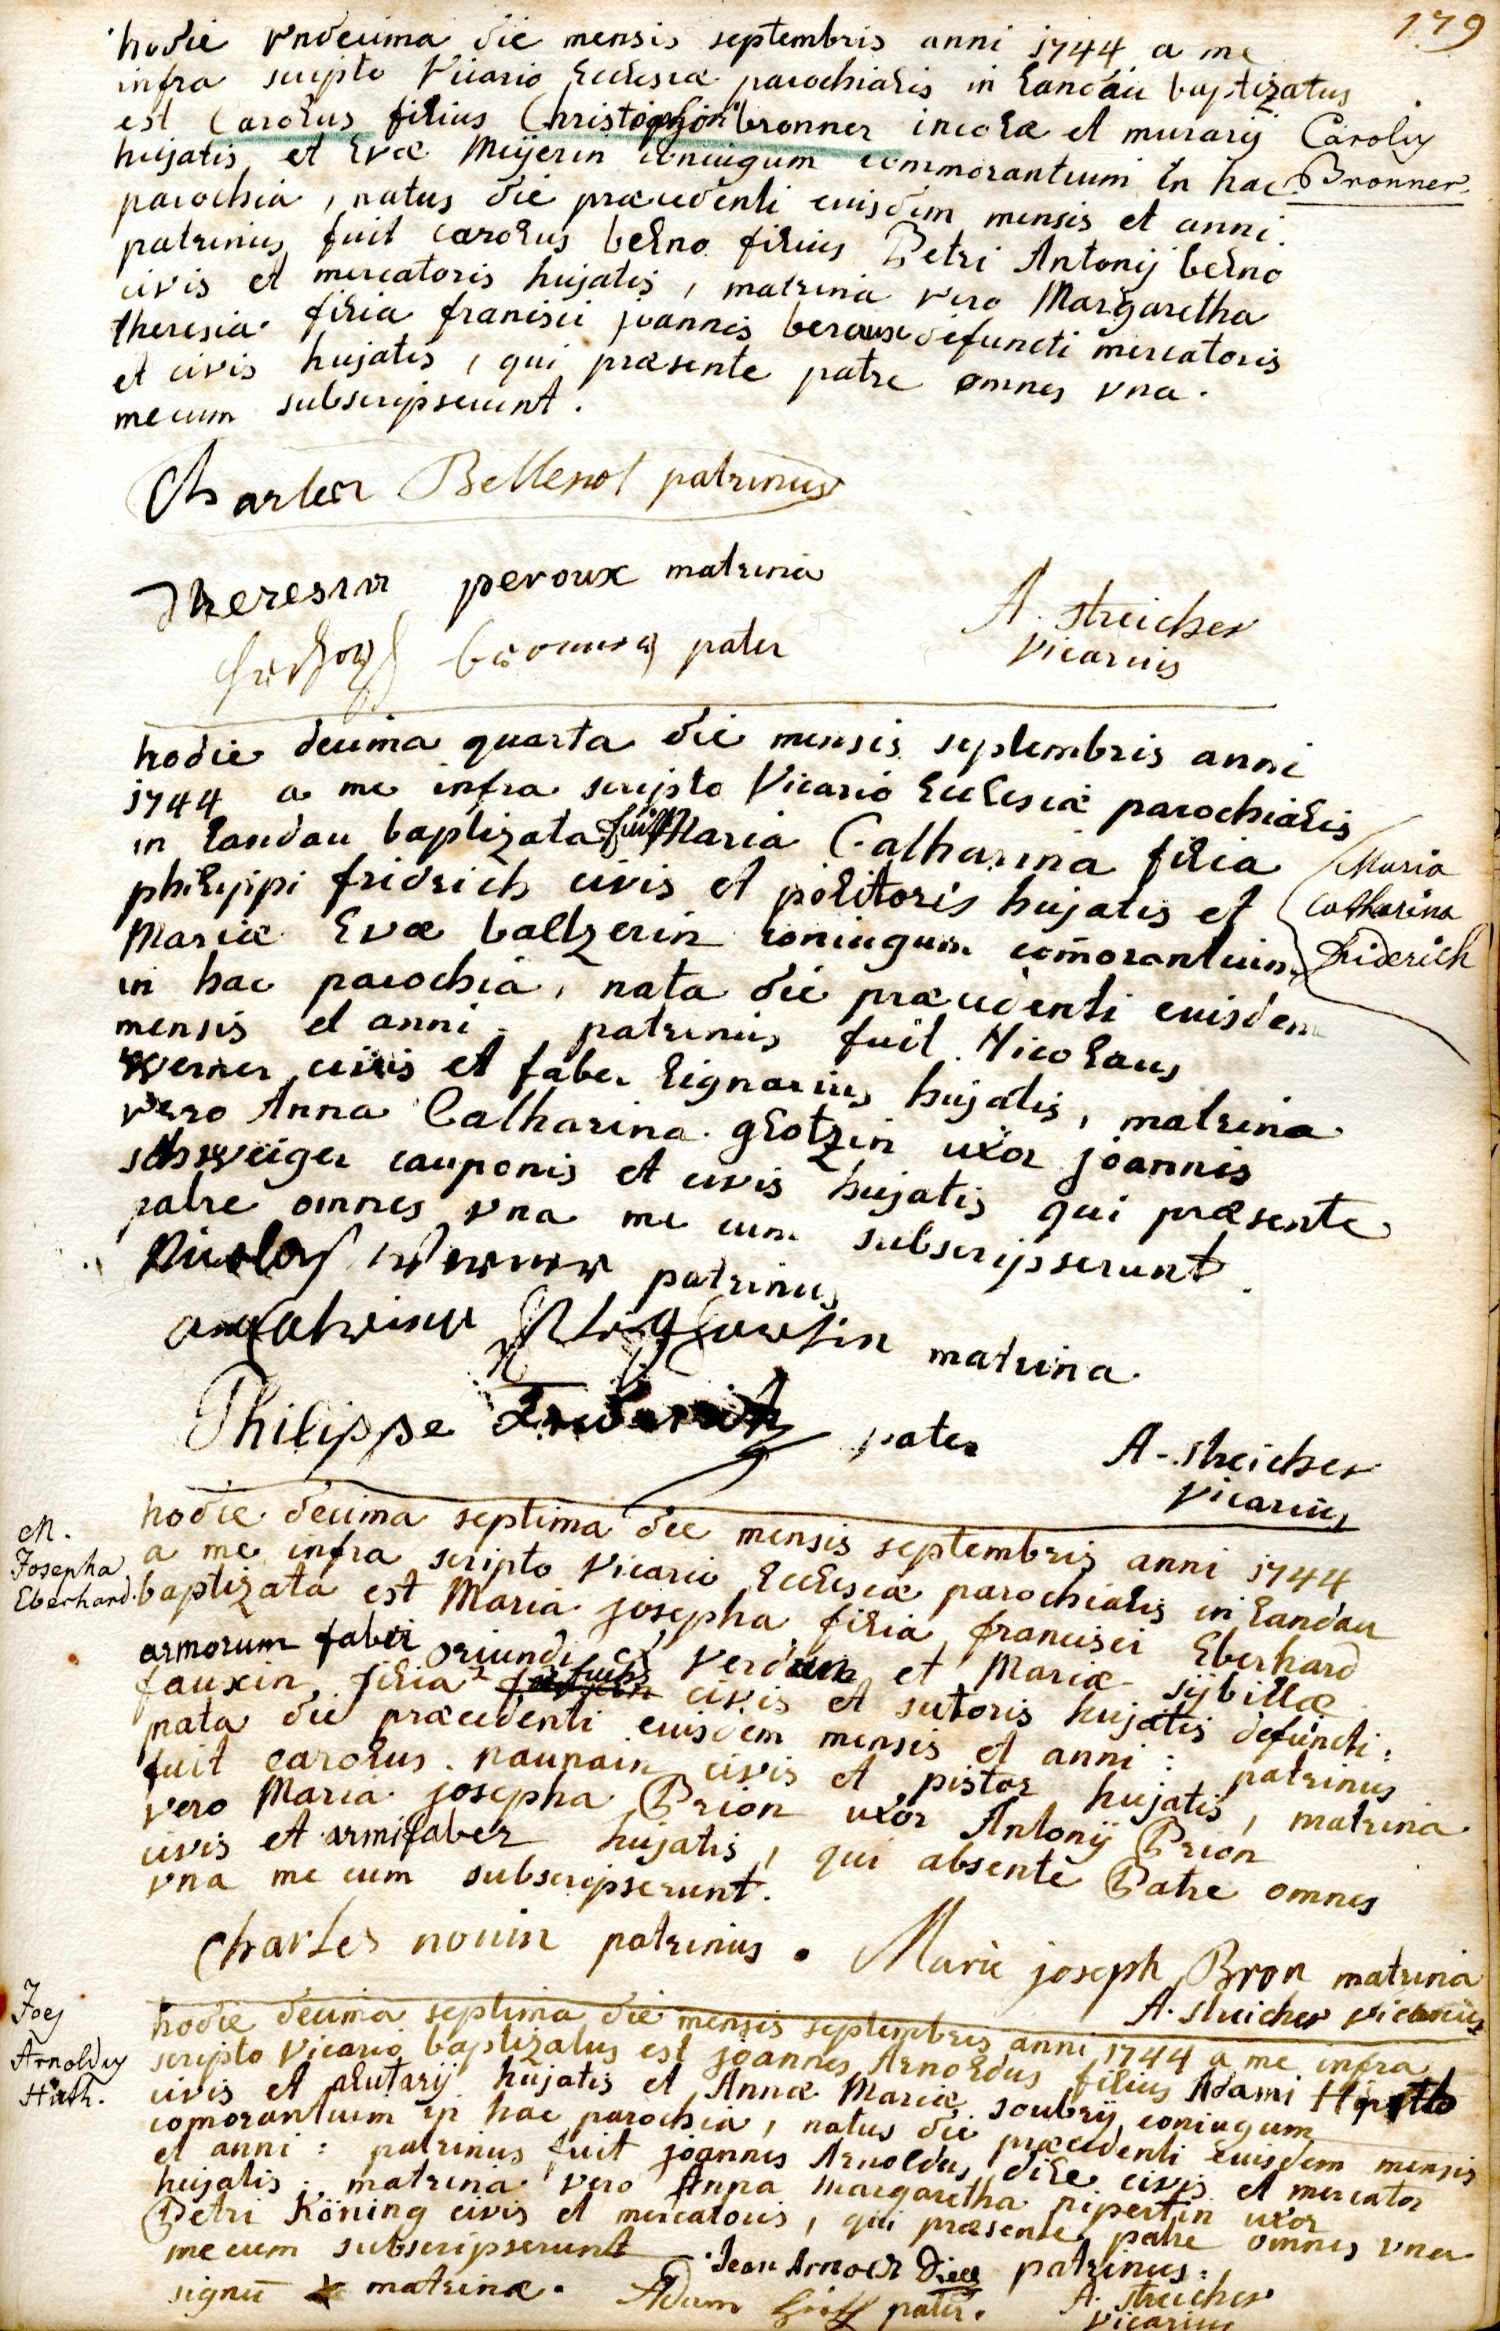 179
hodie vndecima die mensis septembris anni 1744 a me
infra scripto Vicario Ecclesiæ parochialis in Landau baptizatus
est Carolus filius Christophori bronner incolæ et murarij
hujatis et Evæ Meijerin coniugum commorantium in hac
parochia, natus die præcedenti eiusdem mensis et anni.
patrinus fuit carolus belno filius Petri Antonij belno
civis et mercatoris hujatis, matrina vero Margaretha
theresia filia francisci joannis beroux defuncti mercatoris
et civis hujatis, qui præsente patre omnes vna
mecum subscripserunt.
Carolus
Bronner
Charles Bellenot patrinus
Theresia peroux matrina
pater
A. Streicher
Vicarius
hodie decima quarta die mensis septembris anni
1744 a me infra scripto Vicario Ecclesiæ parochialis
in Landau baptizata fuit Maria Catharina filia
philippi fridrich civis et politoris hujatis et
Mariæ Evæ baltzerin coniugum com̄orantium
in hac parochia, nata die præcedenti eiusdem
mensis et anni. patrinus fuit Nicolaus
Werner civis et faber lignarius hujatis, matrina
vero Anna Catharina glotzin uxor joannis
schweiger cauponis et civis hujatis qui præsente
patre omnes vna me cum subscripserunt.
Maria
Catharina
Friderich
Nicolas Werner patrinus
matrina
Philippe Friderich pater
A. Streicher
Vicarius
hodie decima septima die mensis septembris anni 1744
a me infra scripto Vicario Ecclesiæ parochialis in Landau
baptizata est Maria josepha filia francisci Eberhard
armorum fabri oriundi ex Verdun et Mariæ sijbillæ
fauxin, filia fuchs civis et sutoris hujatis defuncti:
nata die præcedenti eiusdem mensis et anni: patrinus
fuit carolus naupain civis et pistor hujatis, matrina
vero Maria josepha Brion uxor Antonij Brion
civis et armifaber hujatis, qui absente Patre omnes
vna me cum subscripserunt.
M.
Josepha
Eberhard.
Charles nouin patrinus. Marie joseph Bron matrina
A. Streicher Vicarius
hodie decima septima die mensis septembris anni 1744 a me infra
scripto Vicario baptizatus est joannes Arnoldus filius Adami
civis et alutarij hujatis et Annæ Mariæ soubrij coniugum
comorantium in hac parochia, natus die præcedenti Eiusdem mensis
et anni: patrinus fuit joannes Arnoldus dile civis et mercator
hujatis; matrina vero Anna margaretha pipertin uxor
Petri Köning civis et mercatoris, qui præsente patre omnes vna
mecum subscripserunt
Joes
Arnoldus
Hüth.
Jean Arnold Diell patrinus.
signū matrinæ. Adam pater.
A. Streicher
Vicarius